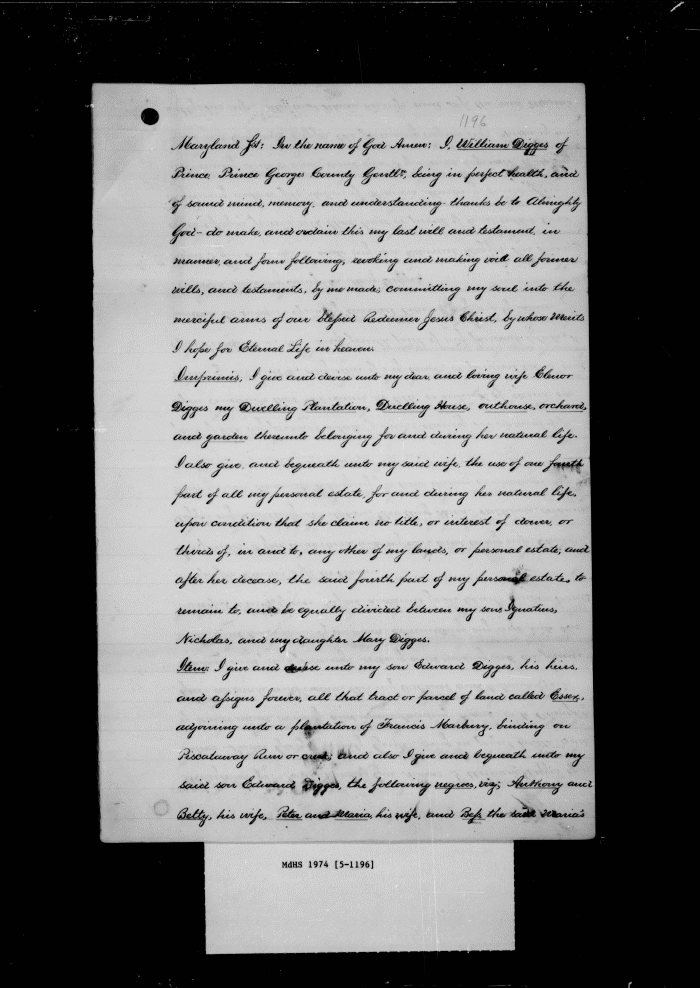 1196
Maryland Sst: In the name of God Amen: I, William Digges of
Prince Prince Georges County Gentlr, being in perfect health, and
of sound mind, memory, and understanding - thanks be to Almighty
God - do make, and ordain this my last will and testament, in
manner, and form following, revoking and making void all former
wills, and testaments, by me made; committing my soul into the
merciful arms of our blessed Redeemer Jesus Christ, by whose Merits
I hope for Eternal Life in heaven.
Imprimis, I give and devise unto my dear, and loving wife Elenor
Digges my Dwelling Plantation, Dwelling House, outhouse, orchard,
and garden thereunto belonging for and during her natural life.
I also give, and bequeath unto my said wife, the use of one fourth
part of all my personal estate, for and during her natural life,
upon condition that she claim no title, or interest of dower, or
thirds of, in and to, any other of my lands, or personal estate; and
after her decease, the said fourth part of my personal estate, to
remain to, and be equally divided between my sons Ignatius,
Nicholas, and my daughter Mary Digges.
Item: I give and devise unto my son Edward Digges, his heirs,
and assigns forever, all that tract or parcel of land called Essex,
adjoining unto a plantation of Francis Marbury, binding on
Piscataway Run or creek; and also I give and bequeath unto my
said son Edward Digges, the following negroes, viz; Anthony and
Betty, his wife, Peter and Maria, his wife, and Bess the said Maria's
MdHS 1974 [5-1196]